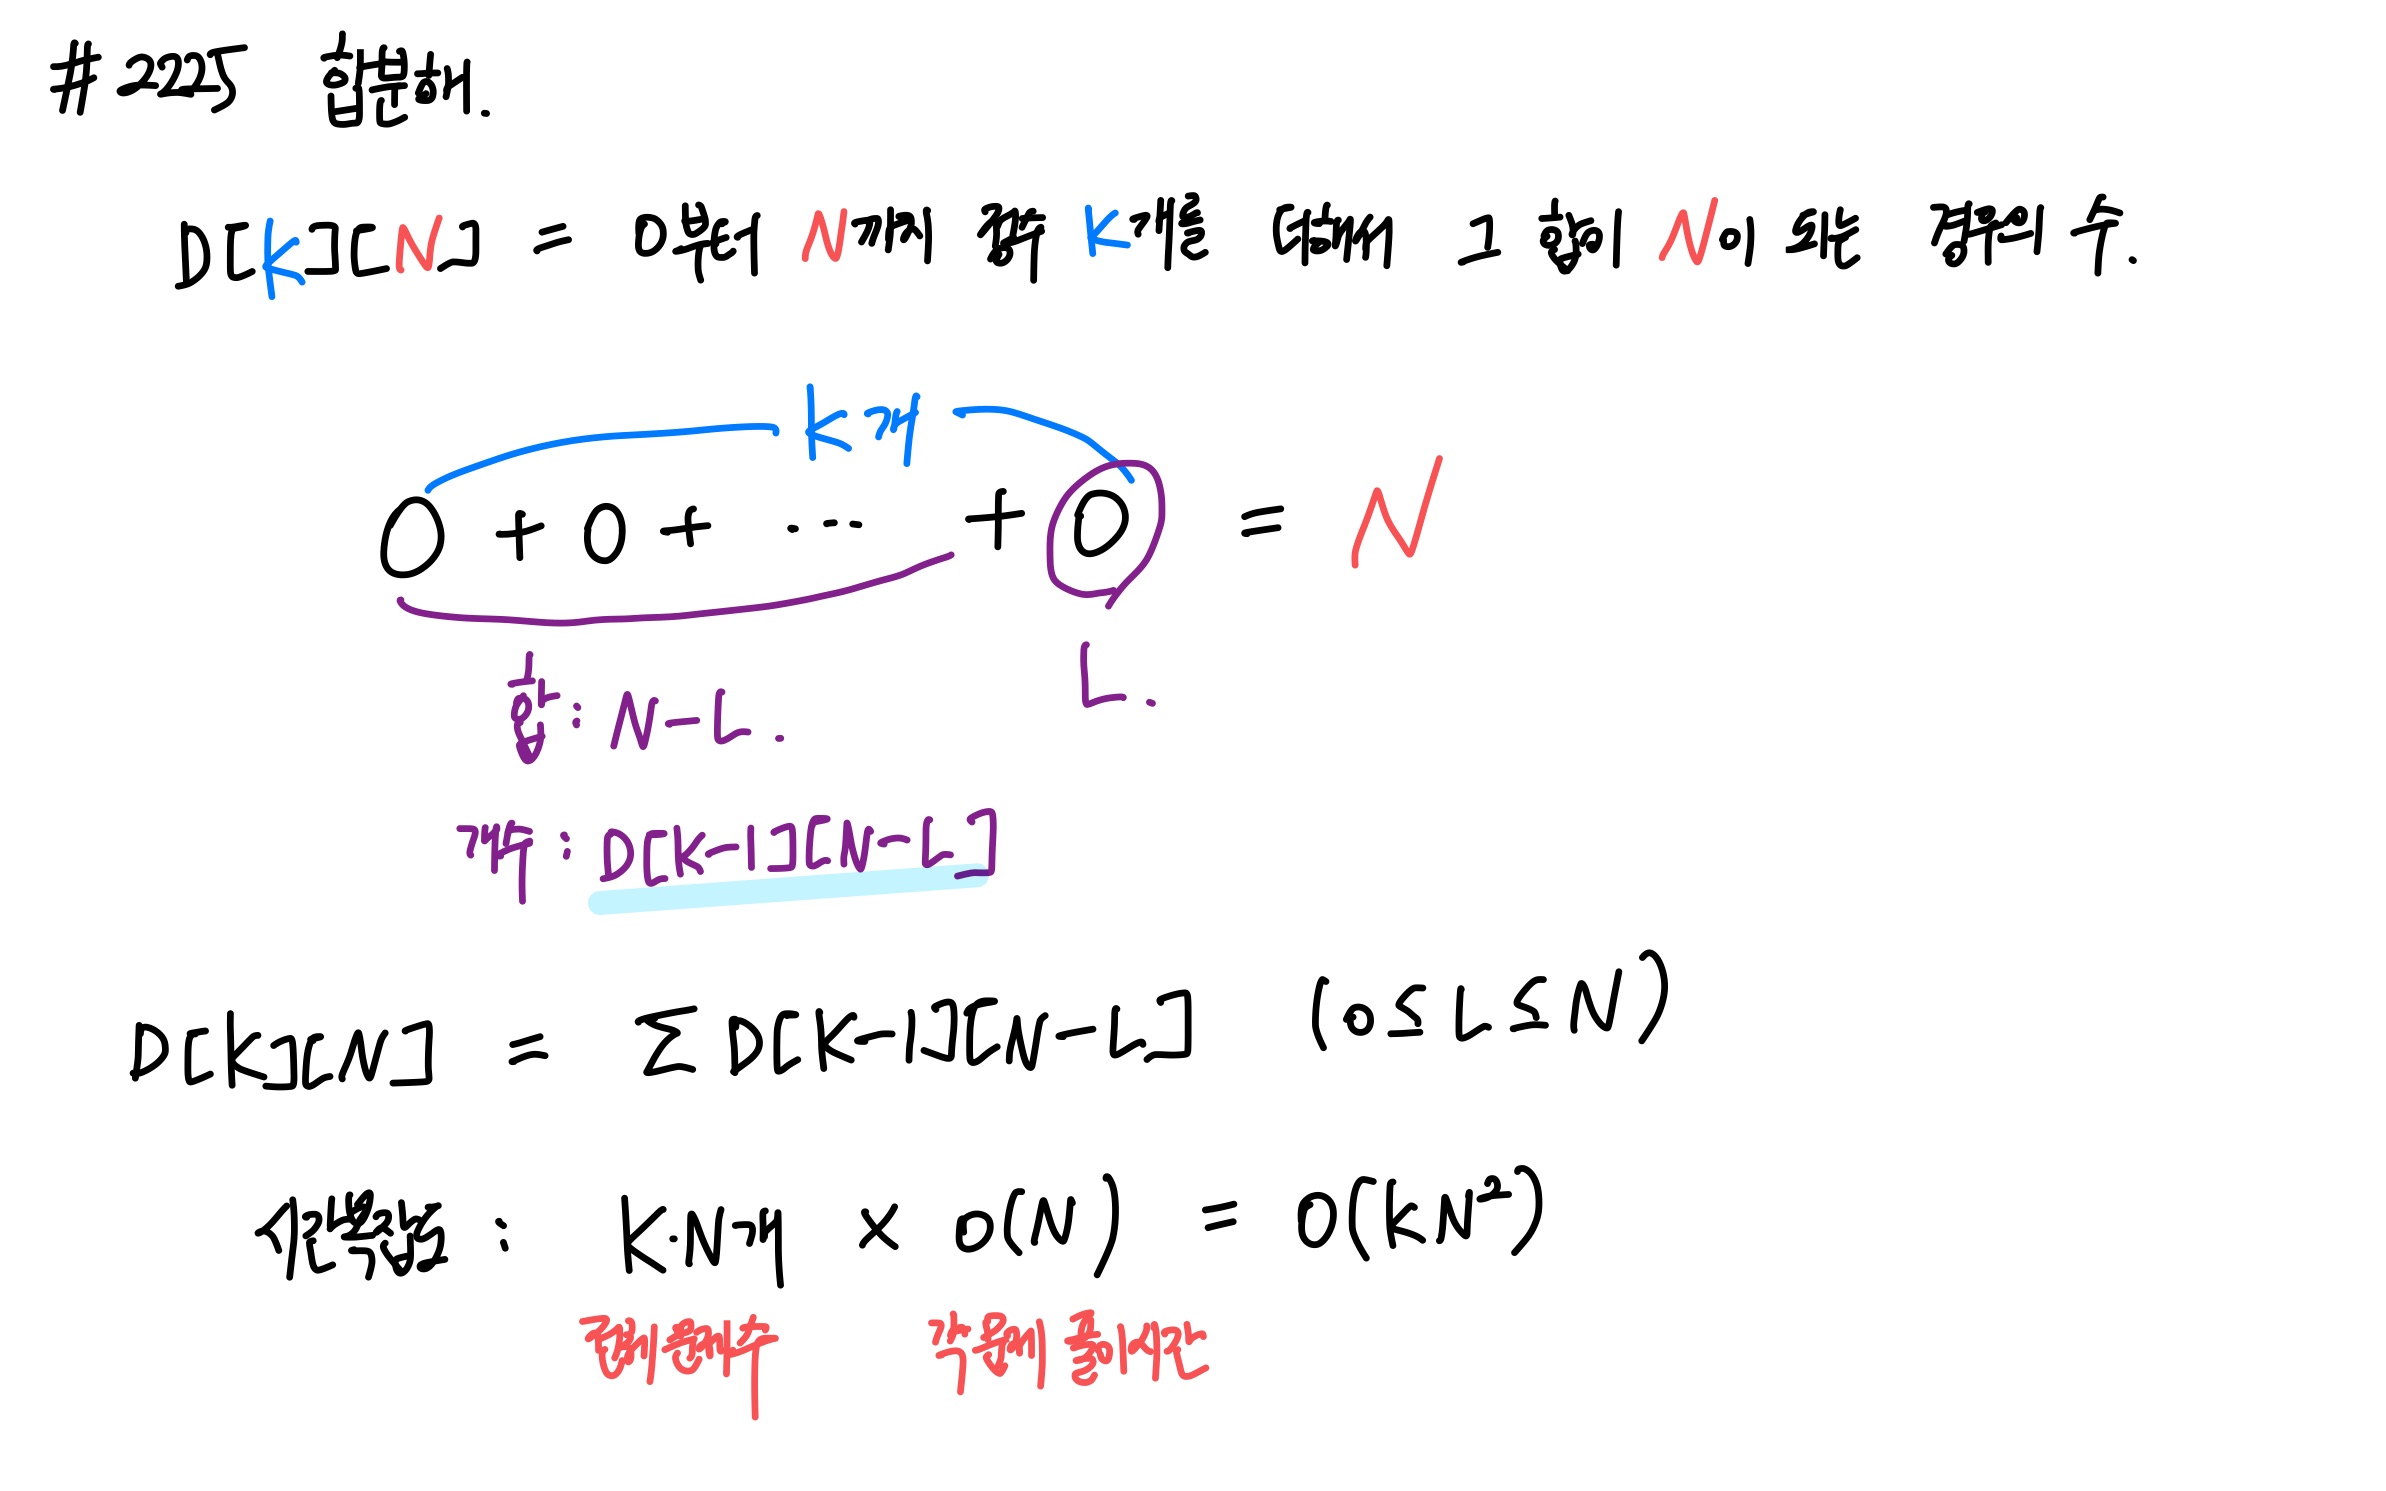 #2225 합분해.
D[K][N] = 0부터 N까지 정수 K개를 더해서 그 합이 N이 되는 경우의 수.
K개
0 + 0 + ... + 0 = N
합 : N-L.
L.
개수 : D[K-1][N-L]
D[K][N] = Σ D[K-1][N-L] (0 ≤ L ≤ N)
시간복잡도 : K·N개 × O(N) = O(KN²)
문제의 개수
각 문제 푸는 시간